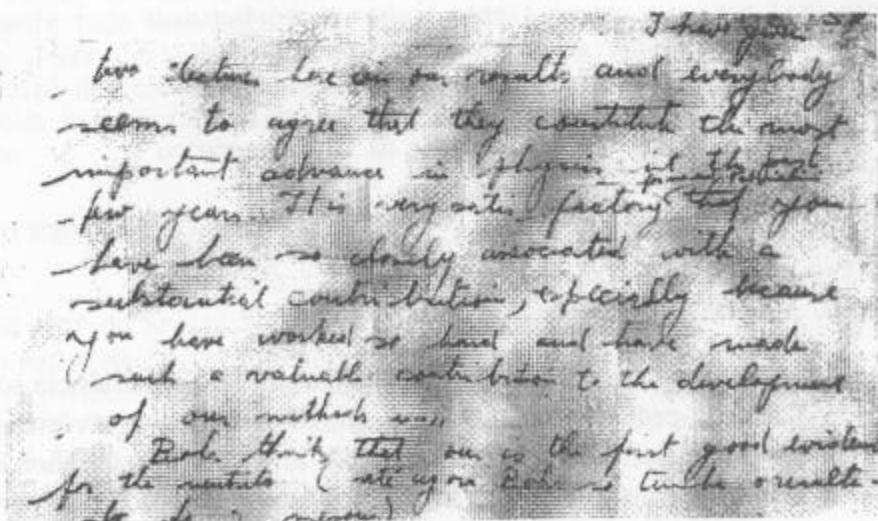 I have given
two lectures here on our results and everybody
seems to agree that they constitute the most
important advance in physics in the past
few years. It is very satisfactory that you
have been so closely associated with a
substantial contribution, especially because
you have worked so hard and have made
such a valuable contribution to the development
of our methods
Bohr thinks that our is the first good eviden
for the (até agora Bohr so tinha